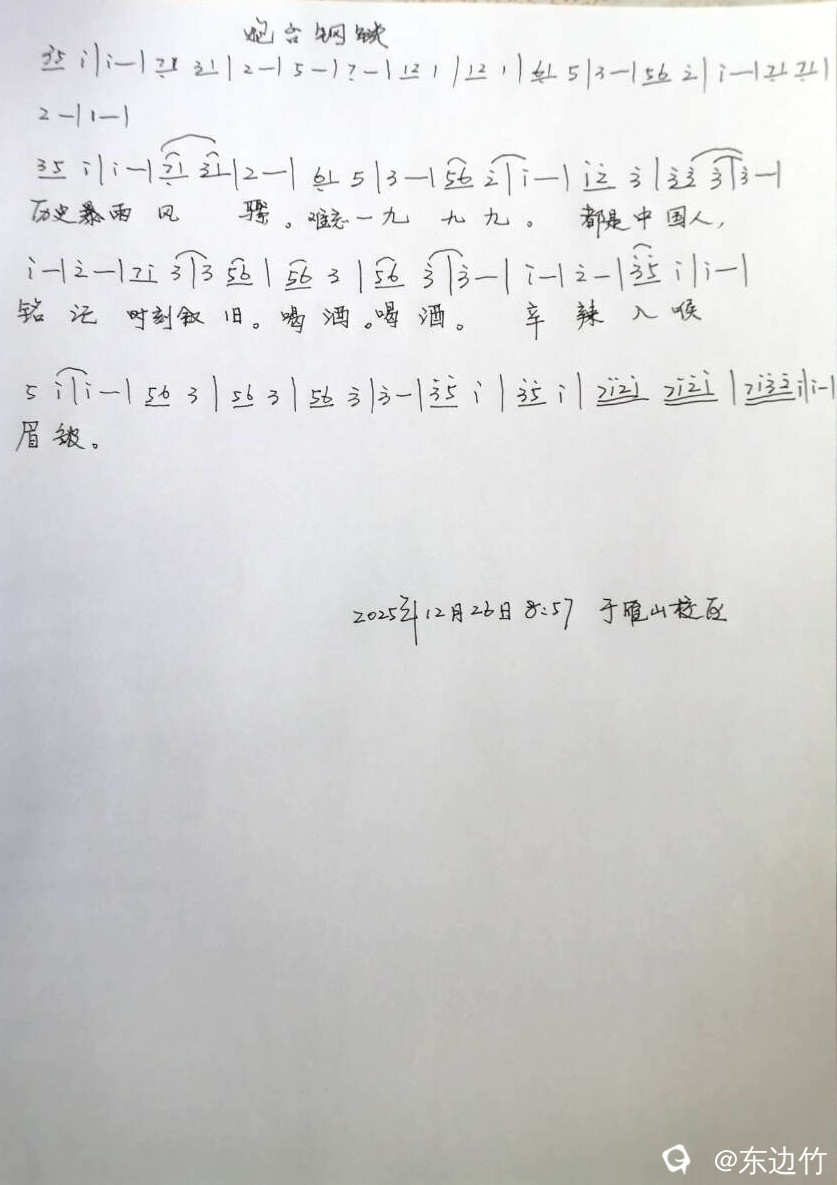 炮台钢铁
35 i | i — | 71 31 | 2 — | 5 — | 7 — | 12 1 | 12 1 | 61 5 | 3 — | 56 2̇ | i — | 71 71 |
2 — | 1 — |
35 i | i — | 71 31 | 2 — | 61 5 | 3 — | 56 2̇ | i — | i2̇ 3̇ | 3̇3̇ 3̇ | 3̇ — |
历史暴雨风 骤。难忘一九 九 九。 都是中国人,
i — | 2̇ — | 7i 3̇ | 3 56 | 56 3 | 56 3̇ | 3̇ — | i — | 2̇ — | 3̇5̇ i | i — |
铭 记 时刻叙 旧。喝 酒。喝 酒。 辛 辣 入 喉
5 i | i — | 56 3 | 56 3 | 56 3̇ | 3̇ — | 3̇5̇ i | 3̇5̇ i | 7i2̇i 7i2̇i | 7i3̇2̇ i | i — |
眉 皱。
2025年12月26日 8:57 于雁山校区
@东边竹